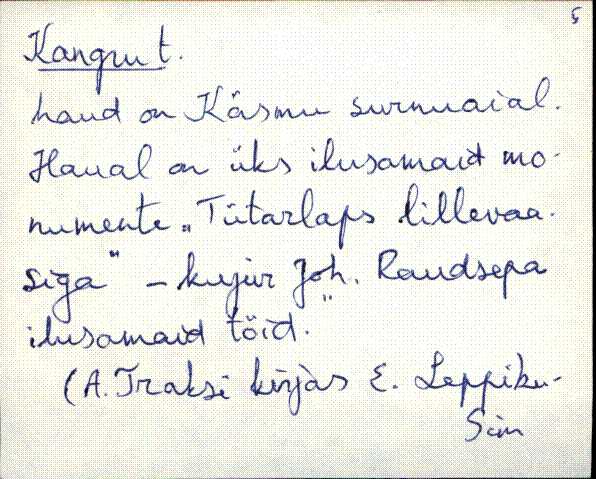 5
Kangru t.
haud on Käsmu surnuaial.
Haual on üks ilusamaid mo-
numente „Tütarlaps lillevaa-
siga" – kujur Joh. Raudsepa
ilusamaid töid."
(A. Traksi kirjas E. Leppiku-